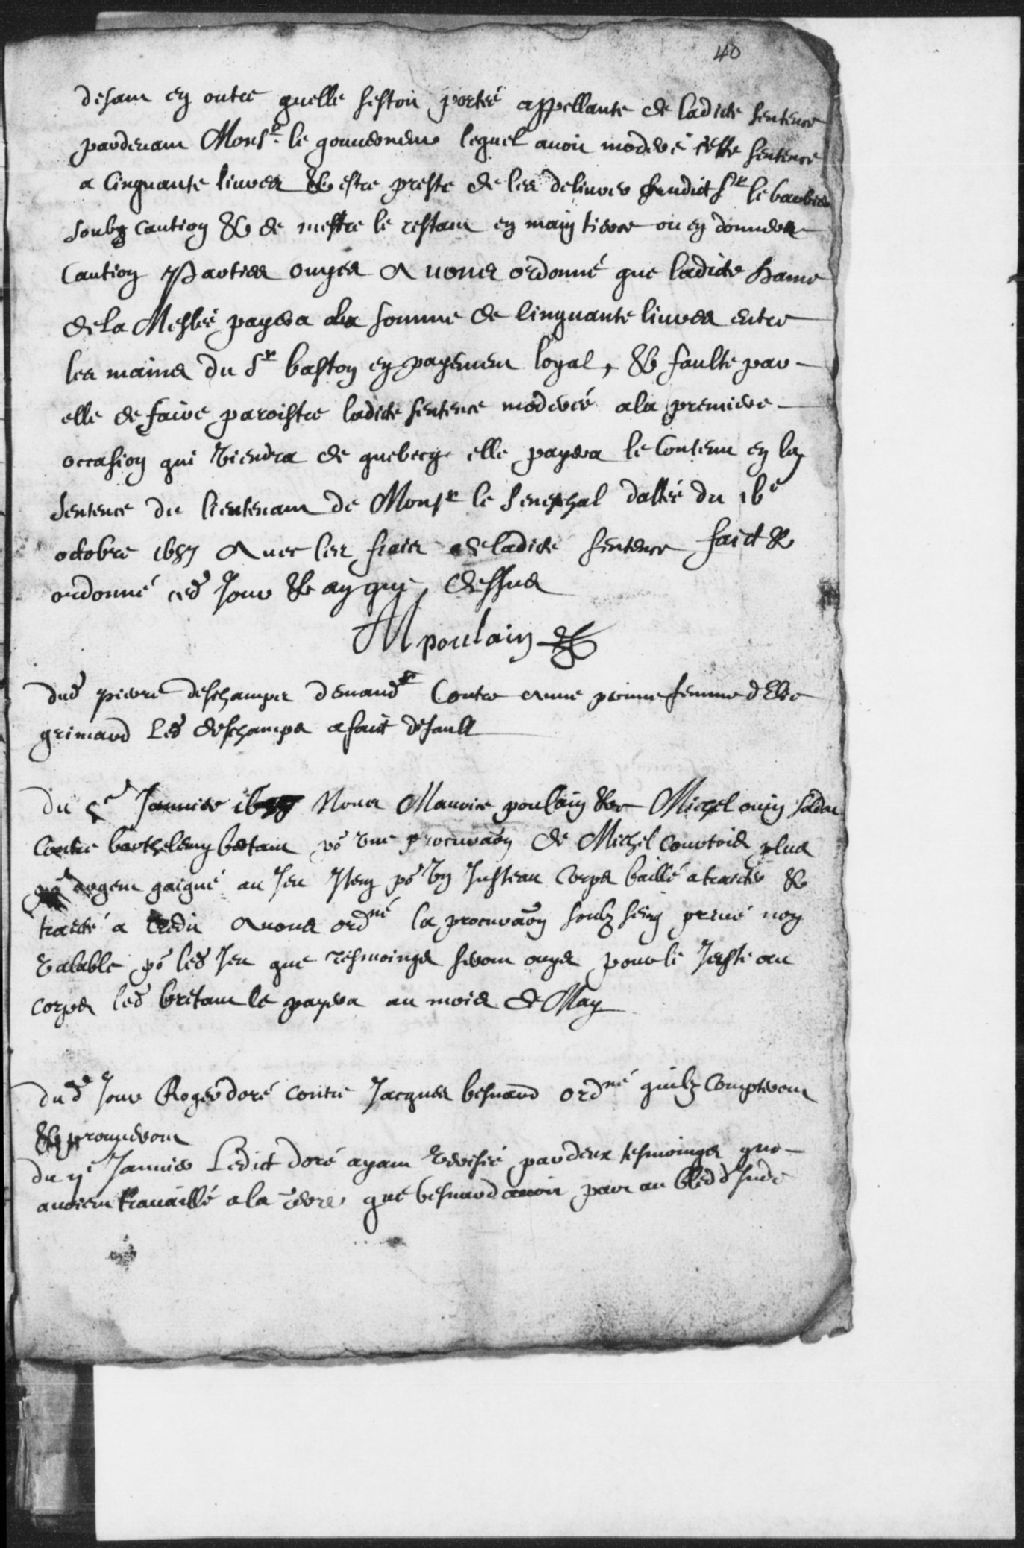 40
disam en outre quelle sestoit portée appellante de ladicte sentence
pardevant Monsr. le gouverneur lequel avoit moderé cette sentence
a Cinquante livres & estre preste de les delivrer audict Sr le barbier
soubz caution & de mettre le restant en main tierce ou en donner
Caution Parties ouyes Avons ordonné que ladicte Dame
de la Meslée payera la somme de Cinquante livres entre
les mains du Sr baston en payement loyal, & faulte par
elle de faire paroistre ladicte sentence moderée a la premiere
occasion qui viendra de quebecq elle payera le Contenu en la
sentence du lieutenant de Monsr le senechal dattée du 16e
octobre 1657 Avec les frais de ladicte sentence faict &
ordonné ced Jour & an que dessus
M poulain
dud pierre deschamps demandr Contre anne femme d'Elie
grimard Led deschamps a fait default
Du Janvier Nous Maurice poulain & Michel ouin
Contre barthelemy bertaut po une procuraon de Michel Courtois plus
po argent gaigné au Jeu Item po un Justeau corps baillé a traicter &
traicté a Avons ordné la procuraon soubz seing privé non
valable po led Jeu que tesmoings seront ouys pour le Justeau
corps led bretaut le payera au mois de May
Dud Jour Roger doré contre Jacques besnard ordné quilz Compteront
& prouveront
du ii Janvier Ledict doré ayant veriffié par deux tesmoings quo
auroient travaillé a la terre que besnard avoit pour au bled d'Inde